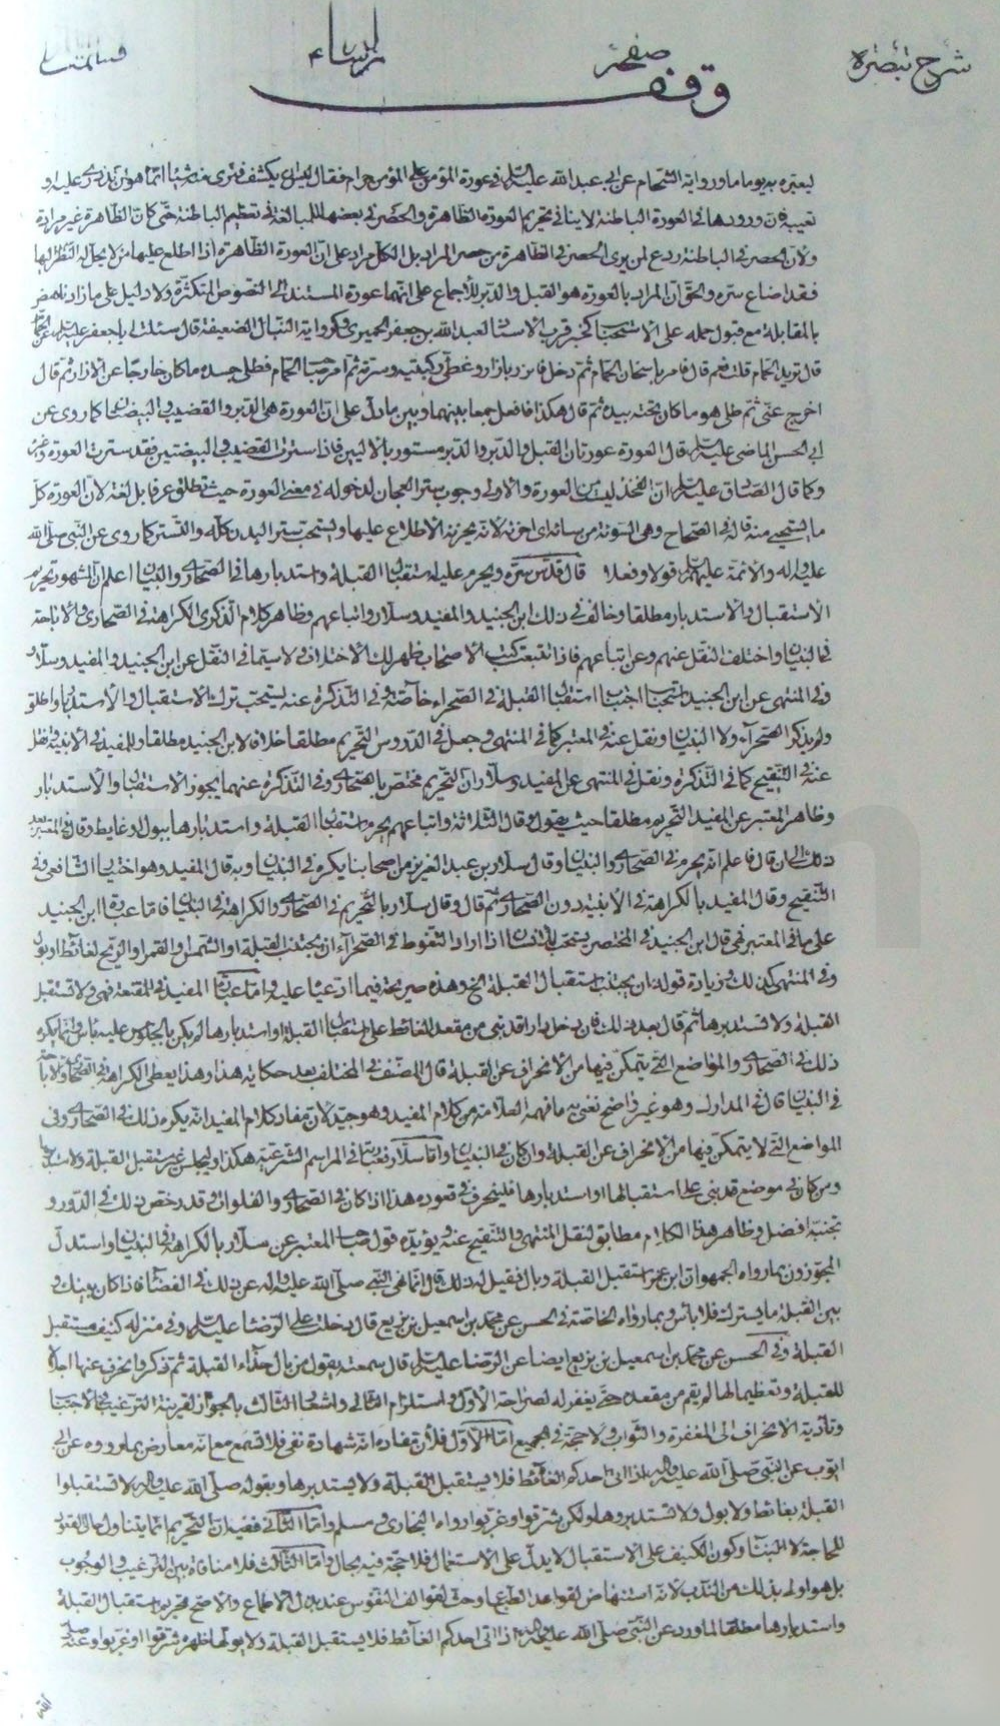 شرح تبصره
صفحه
وقف
ليعيره به يوما ما ورواية الشحام عن ابي عبد الله عليه السلام في عورة المؤمن على المؤمن حرام فقال ليس ان يكشف فترى منه شيئا انما هو ان تذري عليه او
تعيبه فان ورودها في العورة الباطنة لا ينافي تحريم العورة الظاهرة والحصر في بعضها للمبالغة في تعظيم الباطنة حتى كان الظاهرة غير مرادة
ولان الحصر في الباطنة ردع لمن يرى الحصر في الظاهرة من حصر المراد بل الكل مراد على ان العورة الظاهرة اذا اطلع عليها من لا يحل له النظر اليها
فقد اضاع ستره والحق ان المراد بالعورة هو القبل والدبر للاجماع على انهما عورة المستند الى النصوص المتكثرة ولا دليل على ما زاد ناهض
بالمقابلة مع قبول حمله على الاستحباب كخبر قرب الاسناد لعبد الله بن جعفر الحميري وكرواية النبال الضعيفة قال سئلت ابا جعفر عليه السلام عن الحمام
قال تريد الحمام قلت نعم قال فامر باسخان الحمام ثم دخل فاتزر بازار وغطى ركبتيه وسرته ثم امر صاحب الحمام فطلى جسده ما كان خارجا عن الازار ثم قال
اخرج عني ثم طلى هو ما كان تحته بيده ثم قال هكذا فافعل جمعا بينهما وبين ما دل على ان العورة هي الدبر والقضيب والبيضتان كما روى عن
ابي الحسن الماضي عليه السلام قال العورة عورتان القبل والدبر والدبر مستور بالاليين فاذا سترت القضيب والبيضتين فقد سترت العورة
وكما قال الصادق عليه السلام ان الفخذ ليست من العورة والاولى وجوب ستر العجان لدخوله في معنى العورة حيث تطلق عرفا بل لغة لان العورة كل
ما يستحيى منه قاله في الصحاح وهى السوئة من سائه اى احزنه لانه يحزنه الاطلاع عليها ويستحب ستر البدن كله والتستر كما روى عن النبي صلى الله
عليه واله والائمة عليهم السلام قولا وفعلا قال قدس سره ويحرم عليه استقبال القبلة واستدبارها في الصحارى والبنيان اعلم ان المشهور تحريم
الاستقبال والاستدبار مطلقا وخالف في ذلك ابن الجنيد والمفيد وسلار واتباعهم وظاهر كلام الذكرى الكراهة في الصحارى والاباحة
في البنيان واختلف النقل عنهم وعن اتباعهم فاذا تتبعت كتب الاصحاب ظهر لك الاختلاف ولا سيما في النقل عن ابن الجنيد والمفيد وسلار
وفى المنتهى عن ابن الجنيد استحباب اجتناب استقبال القبلة في الصحراء خاصة وفى التذكرة عنه يستحب ترك الاستقبال والاستدبار واطلق
ولم يذكر الصحراء ولا البنيان ونقل عنه في المعتبر كما في المنتهى وجعل في الدروس التحريم مطلقا خلافا لابن الجنيد مطلقا وللمفيد في الابنية ونقل
عنه في التنقيح كما في التذكرة ونقل في المنتهى عن المفيد وسلار ان التحريم مختص بالصحارى وفى التذكرة عنهما يجوز الاستقبال والاستدبار
وظاهر المعتبر عن المفيد التحريم مطلقا حيث يقول وقال الثلاثة واتباعهم يحرم استقبال القبلة واستدبارها ببول وغايط وقال في المعتبر بعد
ذلك الى ان قال فاعلم انه يحرم في الصحارى والبنيان وقال سلار بن عبد العزيز من اصحابنا يكره في البنيان وبه قال المفيد وهو اختيار الشافعى وفى
التنقيح وقال المفيد بالكراهة في الابنية دون الصحارى ثم قال وقال سلار بالتحريم في الصحارى والكراهة في البنيان فاما عبارة ابن الجنيد
على ما في المعتبر فهى قال ابن الجنيد في المختصر يستحب للانسان اذا اراد التغوط في الصحراء ان يجتنب القبلة او الشمس او القمر او الريح لغائط او بول
وفى المنتهى كذلك وزيادة قوله ان يجتنب استقبال القبلة الخ وهذه صريحة فيما ادعينا عليه واما عبارة المفيد في المقنعة فهى ولا تستقبل
القبلة ولا تستدبرها ثم قال بعد ذلك فان دخل دارا قد بني من مقعد الغائط على استقبال القبلة او استدبارها لم يكن بالجلوس عليه باس وانما يكره
ذلك في الصحارى والمواضع التي يتمكن فيها من الانحراف عن القبلة قال المصنف في المختلف بعد حكايته هذا وهذا يعطى الكراهة في الصحارى والاباحة
في البنيان قال في المدارك وهو غير واضح نعنى به ما فهمه العلامة من كلام المفيد وهو جيد لان مفاد كلام المفيد انه يكره ذلك في الصحارى وفى
المواضع التي لا يتمكن فيها من الانحراف عن القبلة وان كان في البنيان واما سلار فعبارته في المراسم الشرعية هكذا وليجلس غير مستقبل القبلة ولا مستدبرها
ومن كان في موضع قد بني على استقبالها او استدبارها فلينحرف في قعوده هذا اذا كان في الصحارى والفلوات وقد رخص ذلك في الدور و
تجنبه افضل وظاهر هذا الكلام مطابق لنقل المنتهى والتنقيح عنه ويؤيده قول صاحب المعتبر عن سلار بالكراهة في البنيان واستدل
المجوزون بما رواه الجمهور ان ابن عمر استقبل القبلة وبال فقيل له ذلك قال انما نهى النبي صلى الله عليه واله عن ذلك في الفضاء فاذا كان بينك و
بين القبلة ما يسترك فلا باس وبما رواه الخاصة في الحسن عن محمد بن اسمعيل بن بزيع قال دخلت على الرضا عليه السلام وفى منزله كنيف مستقبل
القبلة وفى الحسن عن محمد بن اسمعيل بن بزيع ايضا عن الرضا عليه السلام قال سمعته يقول من بال حذاء القبلة ثم ذكر فانحرف عنها اجلالا
للقبلة وتعظيما لها لم يقم من مقعده حتى يغفر له لصراحة الاول واستلزام الثاني واشعار الثالث بالجواز لقرينة الترغيب في الاجتناب
وتأدية الانحراف الى المغفرة والثواب ولا حجة في الجميع اما الاول فلان مفاده انه شهادة نفى فلا تسمع مع انه معارض بما رووه عن ابي
ايوب عن النبي صلى الله عليه واله اذا اتى احدكم الغائط فلا يستقبل القبلة ولا يستدبرها وبقوله صلى الله عليه واله لا تستقبلوا
القبلة بغائط ولا بول ولا تستدبروها ولكن شرقوا او غربوا رواه البخارى ومسلم واما الثاني ففيه ان التحريم انما يتناول حال القعود
للحاجة لا البناء وكون الكنيف على الاستقبال لا يدل على الاستعمال فلا حجة فيه بحال واما الثالث فلا منافاة بين الترغيب والوجوب
بل هو اولى بذلك من الندب لانه استنهاض لقواعد الطباع وحث لقوالف النفوس عند بذل الاطماع والاصح تحريم استقبال القبلة
واستدبارها مطلقا لما ورد عن النبي صلى الله عليه واله اذا اتى احدكم الغائط فلا يستقبل القبلة ولا يولها ظهره شرقوا او غربوا وعنه صلى
الله